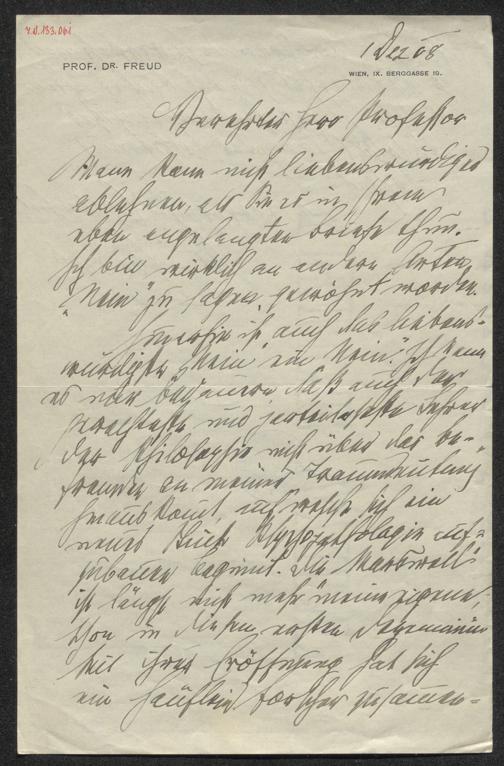 PROF. DR. FREUD
1 Dez 08
WIEN, IX. BERGGASSE 19.
Verehrter Herr Professor
Mann kann nicht liebenswürdiger
ablehnen, als Sie es in Ihrem
eben angelangten Briefe thun.
Ich bin wirklich an andere Arten
"Nein" zu sagen gewöhnt worden.
Immerhin ist auch das liebens-
würdigste Nein ein Nein. Ich kann
es nur bedauern daß auch der
und Lehrer
der Philosophie nicht über das Be-
fremden an meiner Traumdeutung
hinauskommt, auf welche sich ein
neues Stück Psychopathologie auf-
zubauen beginnt. Die
ist längst nicht mehr meine eigene,
schon in diesen ersten
seit ihrer Eröffnung hat sich
ein Häuflein Forscher zusammen-